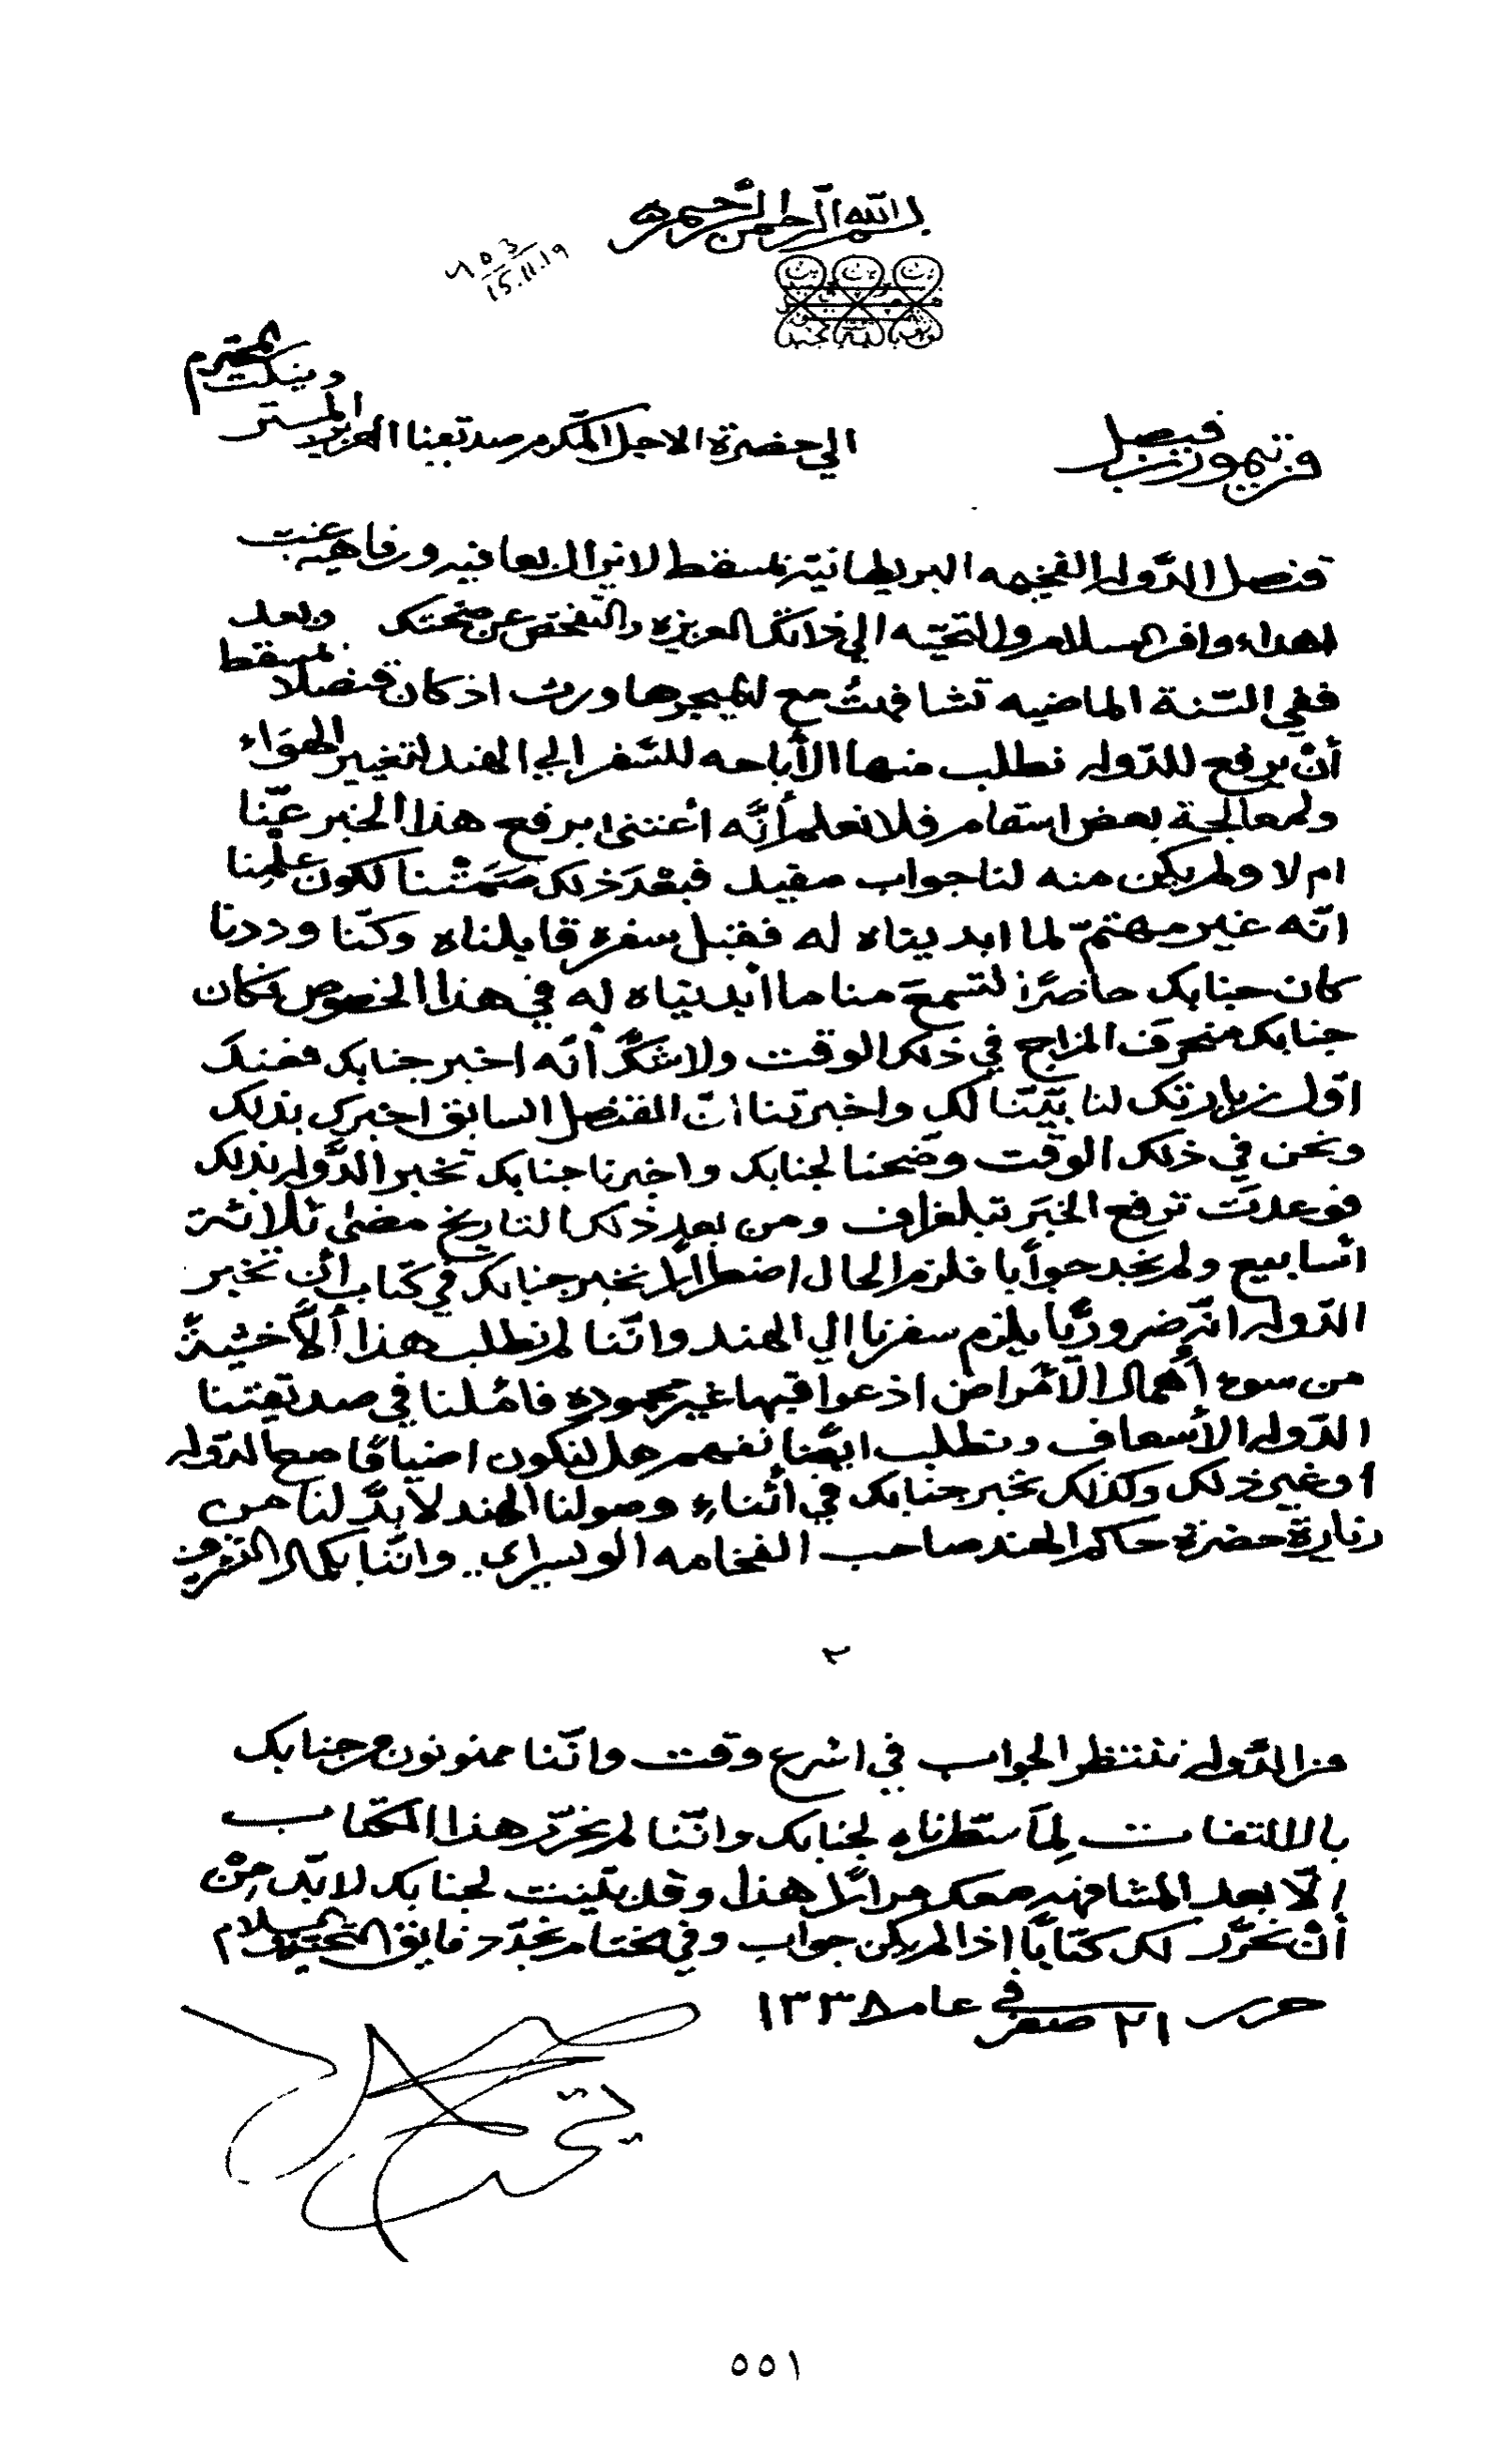 بسم الله الرحمن الرحيم
15.11.19
من تيمور بن فيصل
الي حضرة الاجل المكرم صديقنا العزيز المستر وينكت المحترم
قنصل الدوله الفخيمه البريطانيّة بمسقط لا يزال بعافيه ورفاهيه غبّ
اهداء وافر السلام والتحيّه الي ذاتك العزيزه والتفحّص عن صحتك وبعد
ففي السّنة الماضيه تشافهتُ مع الميجر هاورث اذ كان قنصلاً بمسقط
أنْ يرفع للدّوله نطلب منها الأباحه للسّفر الي الهند لتغيير الهوَاء
ولمعالجة بعض اسقام فلا نعلم أنّه اعتنى برفع هذا الخبر عنّا
ام لا ولم يكن منه لنا جواب مفيد فبعْدَ ذلك صَمَتْنا لكون علمِنا
انّه غير مهتمّ لما ابديناه له فقبل سفره قابلناه وكنّا وددنا
كان جنابك حاضرًا لتسمعَ منا ما أبديناه له في هذا الخصوص فكان
جنابك منحرَف المزاج في ذلك الوقت ولا شكّ أنّه اخبر جنابك فعند
اوّل زيارتك لنا بيّنّا لك واخبرتنا انّ القنصل السابق اخبرك بذلك
ونحن في ذلك الوقت وضّحنا لجنابك واخبرنا جنابك تخبر الدّوله بذلك
فوعدتَ ترفع الخبَر بتلغراف ومن بعد ذلك التاريخ مضىٰ ثلاثة
اسابيع ولم نجد جوابًا فلزم الحال اضطرارًا نخبر جنابك في كتاب أن تخبر
الدّوله انّه ضروريًّا يلزم سفرنا الي الهند وانّنا لم نطلب هذا ألاّ خشيةً
من سوء إهمال الأمْراض اذ عواقبها غير محموده فامُلنا في صديقتنا
الدّوله الأسعاف ونطلب ايضًا نفهم هل نكون اضيافًا مع الدّوله
او غير ذلك وكذلك نخبر جنابك في أثناءِ وصولنا الهند لا بدّ لنا من
زيارة حضرة حاكم الهند صاحب الفخامه الويسراي وانّنا بكمال التشرف
٢
من الدّوله ننتظر الجواب في اسْرع وقت وانّنا ممنونون من جنابك
بالالتفات لِمَا سَطّرناه لجنابك وانّنا لم نحرّر هذا الكتاب
إلّا بعد المشافهه معك مرارًا هذا وقد بيّنت لجنابك لا بدّ مِنْ
أنْ نحرّر لك كتابًا اذا لم يكن جواب وفي الختام نجدّد فايق التحيّه والسلام
حرر في ٢١ صفر عام ١٣٣٨
٥٥١